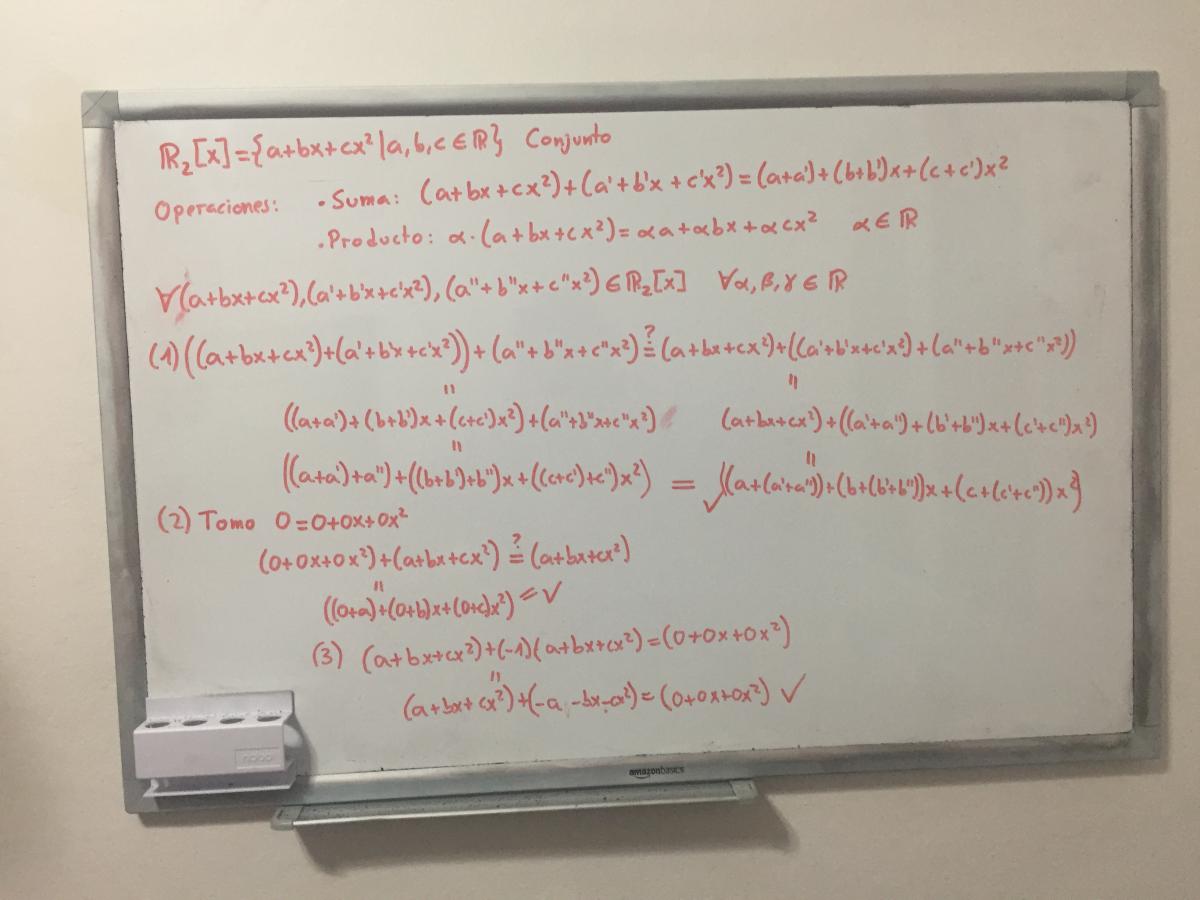 ℝ₂[x]={a+bx+cx² | a,b,c ∈ ℝ} Conjunto
Operaciones: • Suma: (a+bx+cx²)+(a'+b'x+c'x²)=(a+a')+(b+b')x+(c+c')x²
• Producto: α·(a+bx+cx²)=αa+αbx+αcx² α∈ℝ
∀(a+bx+cx²),(a'+b'x+c'x²),(a''+b''x+c''x²)∈ℝ₂[x] ∀α,β,γ∈ℝ
(1)((a+bx+cx²)+(a'+b'x+c'x²))+(a''+b''x+c''x²) ≟ (a+bx+cx²)+((a'+b'x+c'x²)+(a''+b''x+c''x²))
= =
((a+a')+(b+b')x+(c+c')x²)+(a''+b''x+c''x²) (a+bx+cx²)+((a'+a'')+(b'+b'')x+(c'+c'')x²)
= =
((a+a')+a'')+((b+b')+b'')x+((c+c')+c'')x²) = ✓ ((a+(a'+a''))+(b+(b'+b''))x+(c+(c'+c''))x²)
(2) Tomo 0=0+0x+0x²
(0+0x+0x²)+(a+bx+cx²) ≟ (a+bx+cx²)
=
((0+a)+(0+b)x+(0+c)x²) = ✓
(3) (a+bx+cx²)+(-1)(a+bx+cx²)=(0+0x+0x²)
=
(a+bx+cx²)+(-a-bx-cx²)=(0+0x+0x²) ✓
nobo
amazonbasics